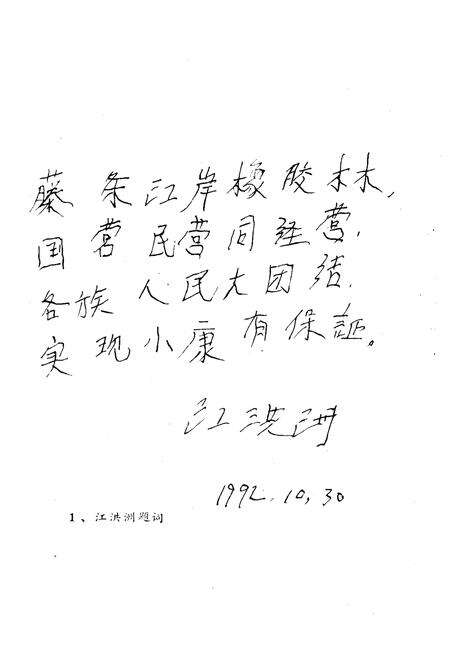 藤条江岸橡胶林,
国营民营同经营,
各族人民大团结,
实现小康有保证。
江洪洲
1992.10.30
1、江洪洲题词